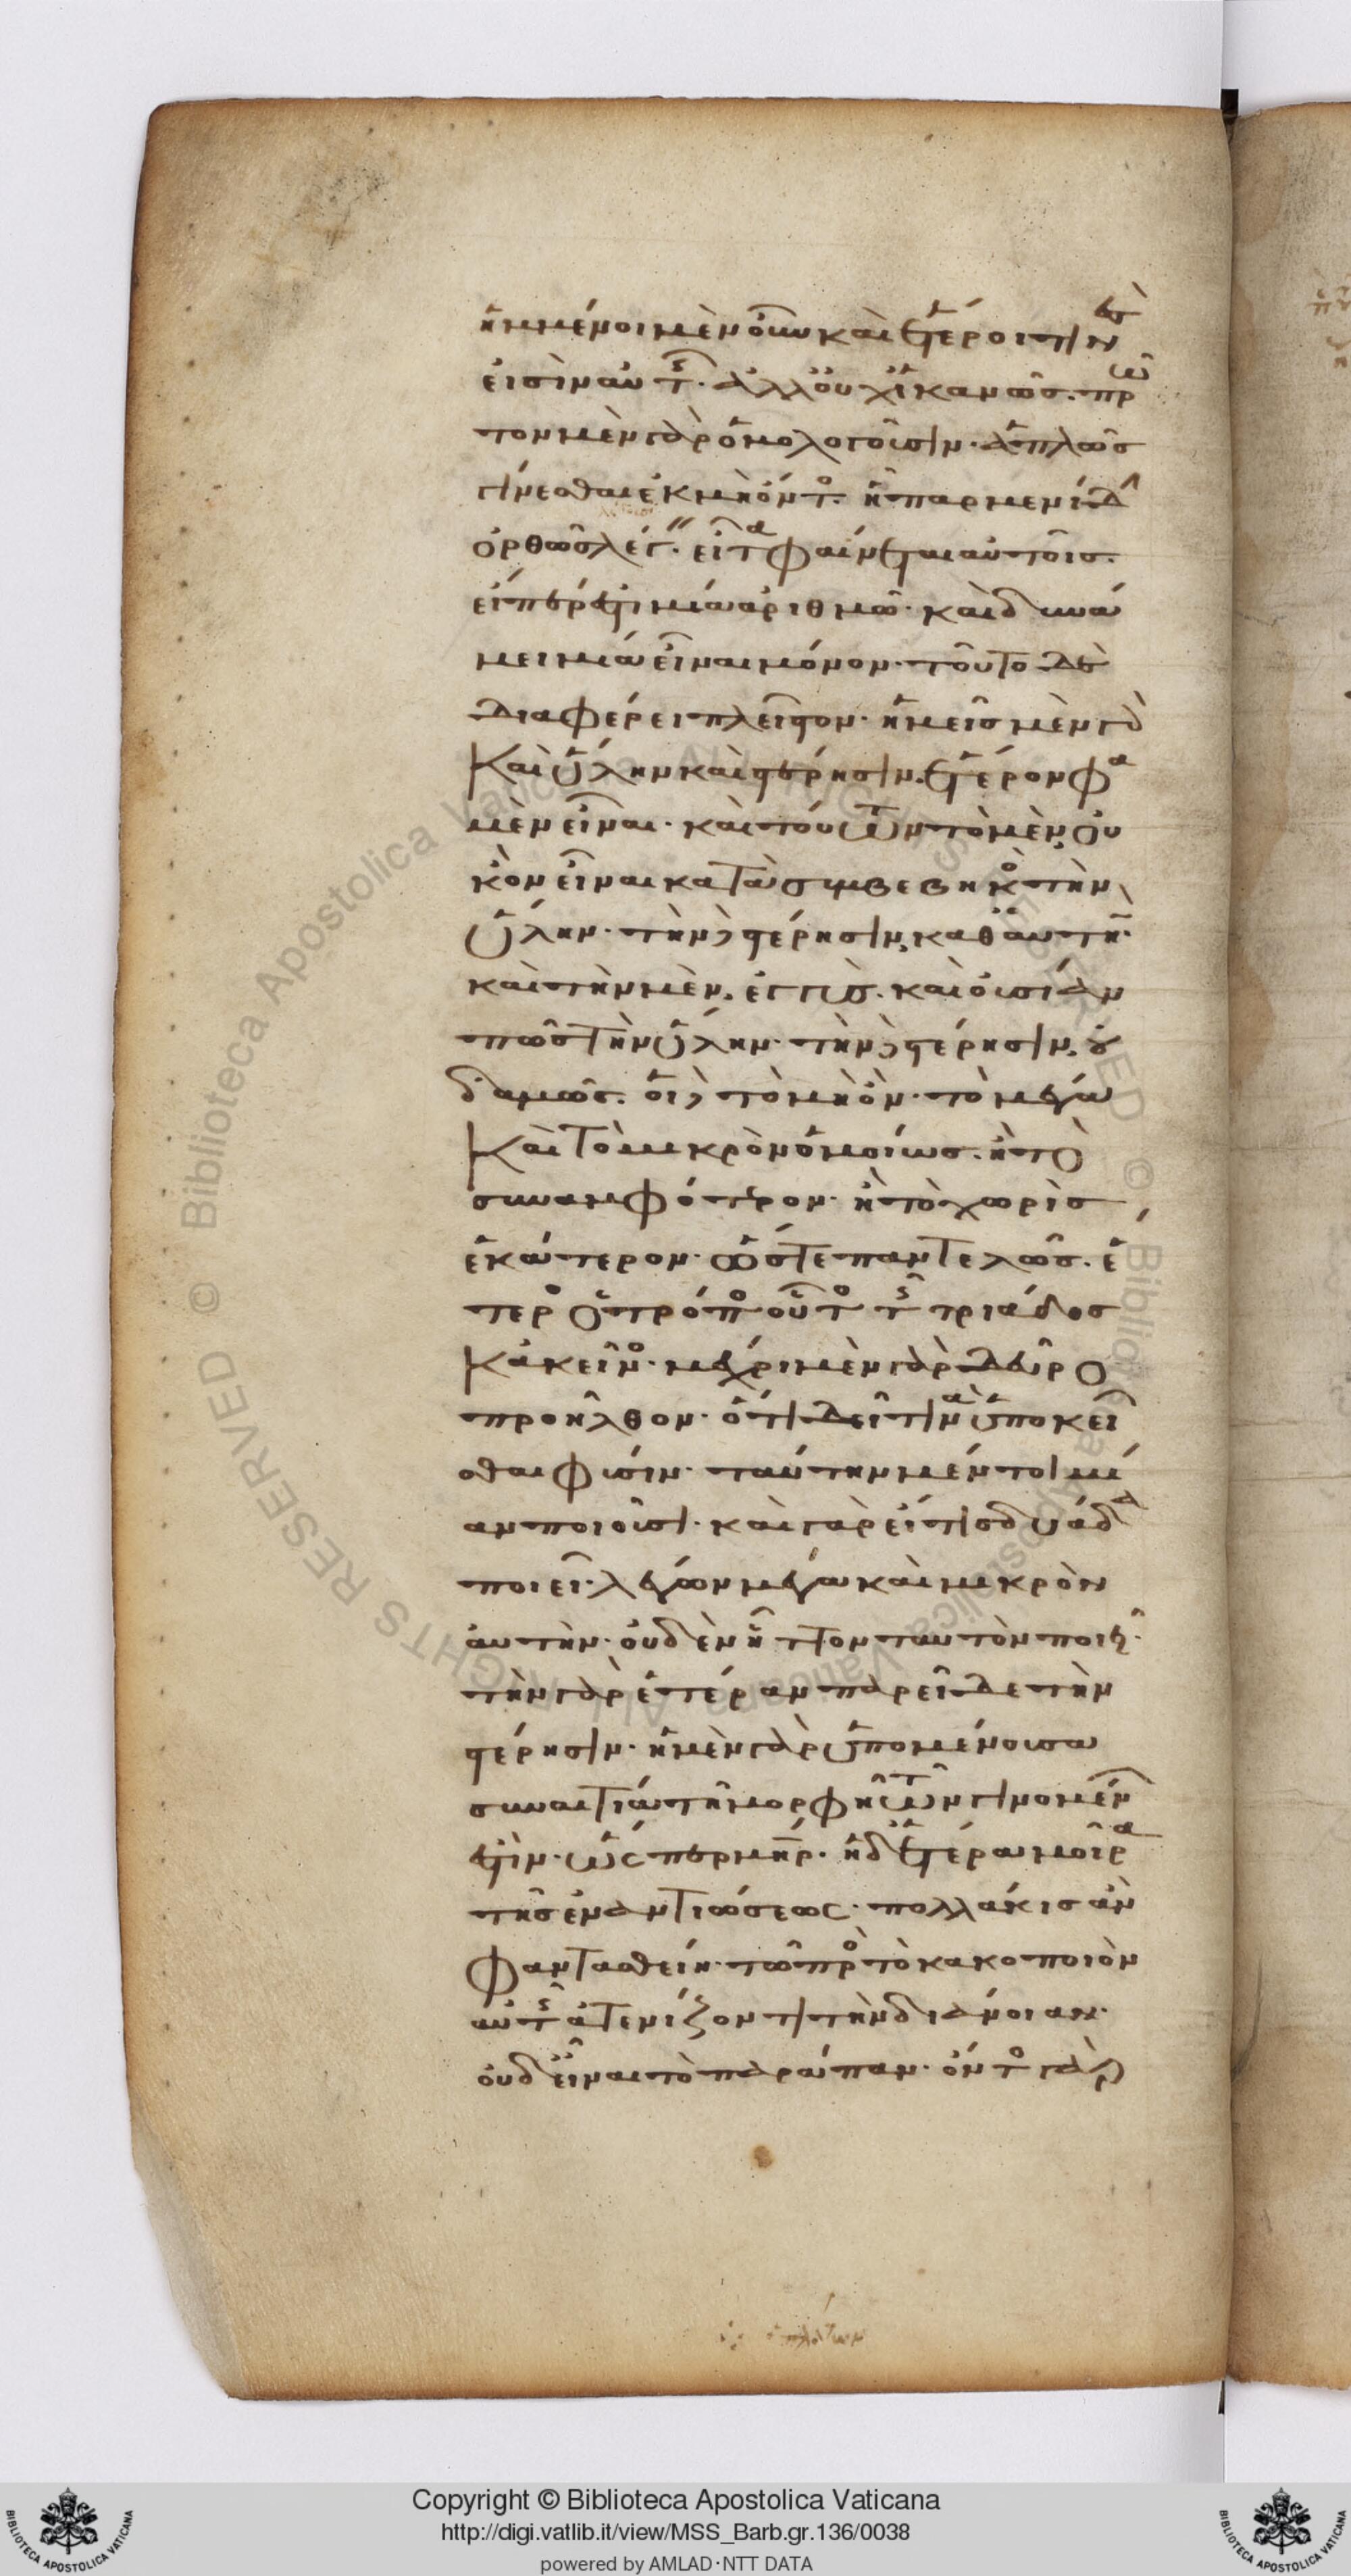 ἡμμένοι μὲν οὖν καὶ ἕτεροί τινὲς
εἰσὶν αὐτῆς. ἀλλ' οὐχ ἱκανῶς. πρῶ
τον μὲν γὰρ ὁμολογοῦσιν. ἁπλῶς
γίνεσθαι ἐκ μὴ ὄντος. ᾗ παρμενίδην
ὀρθῶς λέγειν. εἶτα φαίνεται αὐτοῖς.
εἴπέρ ἐστι μία ἀριθμῶ. καὶ δυνά
μει μία εἶναι μόνον. τοῦτο δὲ
διαφέρει πλεῖστον. ἡμεῖς μὲν γὰρ
καὶ ὕλην καὶ στέρησιν. ἕτερόν φα
μὲν εἶναι. καὶ τούτων τὸ μὲν οὐ
κ ὂν εἶναι κατὰ συμβεβηκὸς τὴν
ὕλην. τὴν δὲ στέρησιν καθ' αὑτήν.
καὶ τὴν μὲν. ἐγγὺς. καὶ οὐσίαν
πως τὴν ὕλην. τὴν δὲ στέρησιν οὐ
δαμῶς. οἱ δὲ τὸ μὴ ὂν. τὸ μέγα
καὶ τὸ μικρὸν ὁμοίως. ἢ τὸ
συναμφότερον. ἢ τὸ χωρὶς
ἑκάτερον. ὥστε παντελῶς. ἕ
τερος ὁ τρόπος οὗτος τῆς τριάδος
κἀκεῖνος. μέχρι μὲν γὰρ δεῦρο
προῆλθον. ὅτι δεῖ τινὰ ὑποκεῖ
σθαι φύσιν. ταύτην μέντοι μί
αν ποιοῦσι. καὶ γὰρ εἴ τις δυάδα
ποιεῖ. λέγων μέγα καὶ μικρὸν
αὐτὴν. οὐδὲν ἧττον ταυτὸν ποιεῖ.
τὴν γὰρ ἑτέραν παρεῖδε τὴν
στέρησιν. ἡ μὲν γὰρ ὑπομένουσα
συναιτία τῆ μορφῆ τῶν γινομένων
ἐστὶν. ὥσπερ μήτηρ. ἡ δ' ἑτέρα μοῖρα
τῆς ἐναντιώσεως. πολλάκις ἂν
φαντασθείη. τῶ πρὸς τὸ κακοποιὸν
αὐτῆς ἀτενίζοντι τὴν διάνοιαν.
οὐδ' εἶναι τὸ παράπαν. ὄντος γὰρ